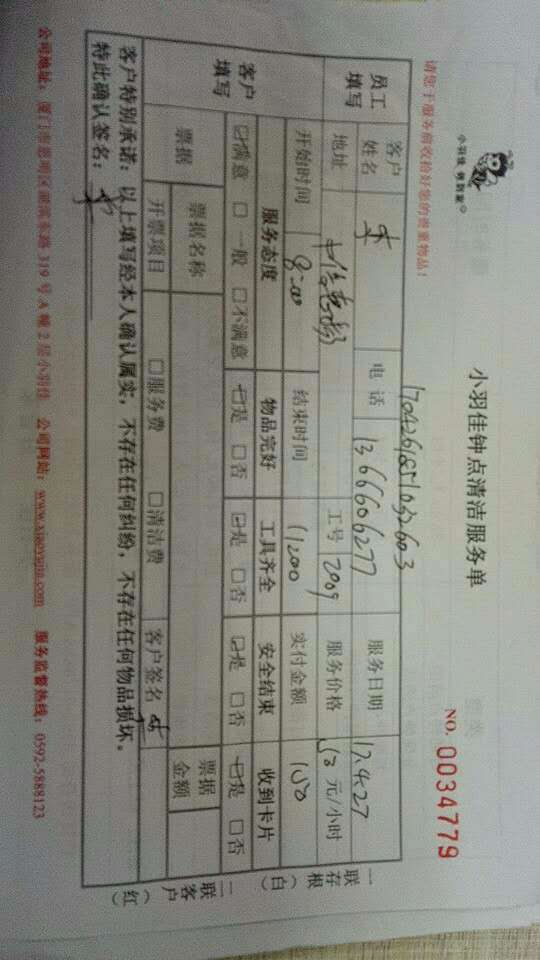 小羽佳 俏到家
小羽佳钟点清洁服务单
NO. 0034779
请您于服务前收拾好您的贵重物品！
17042618510532603
员工填写
客户姓名 电话 13666606277 服务日期 17.4.27
地址 工号 2009 服务价格 元/小时
开始时间 8:00 结束时间 实付金额
客户填写
服务态度 物品完好 工具齐全 安全结束 收到卡片
☑满意 □一般 □不满意 ☑是 □否 ☑是 □否 ☑是 □否 ☑是 □否
票据 票据名称 票据金额
开票项目 □服务费 □清洁费 客户签名
客户特别承诺：以上填写经本人确认属实，不存在任何纠纷，不存在任何物品损坏。
特此确认签名：
一联存根（白） 二联客户（红）
公司地址：厦门市思明区 东路319号A幢2层小羽佳 公司网站：www.xiaoyujia.com 服务监督热线：0592-5888123